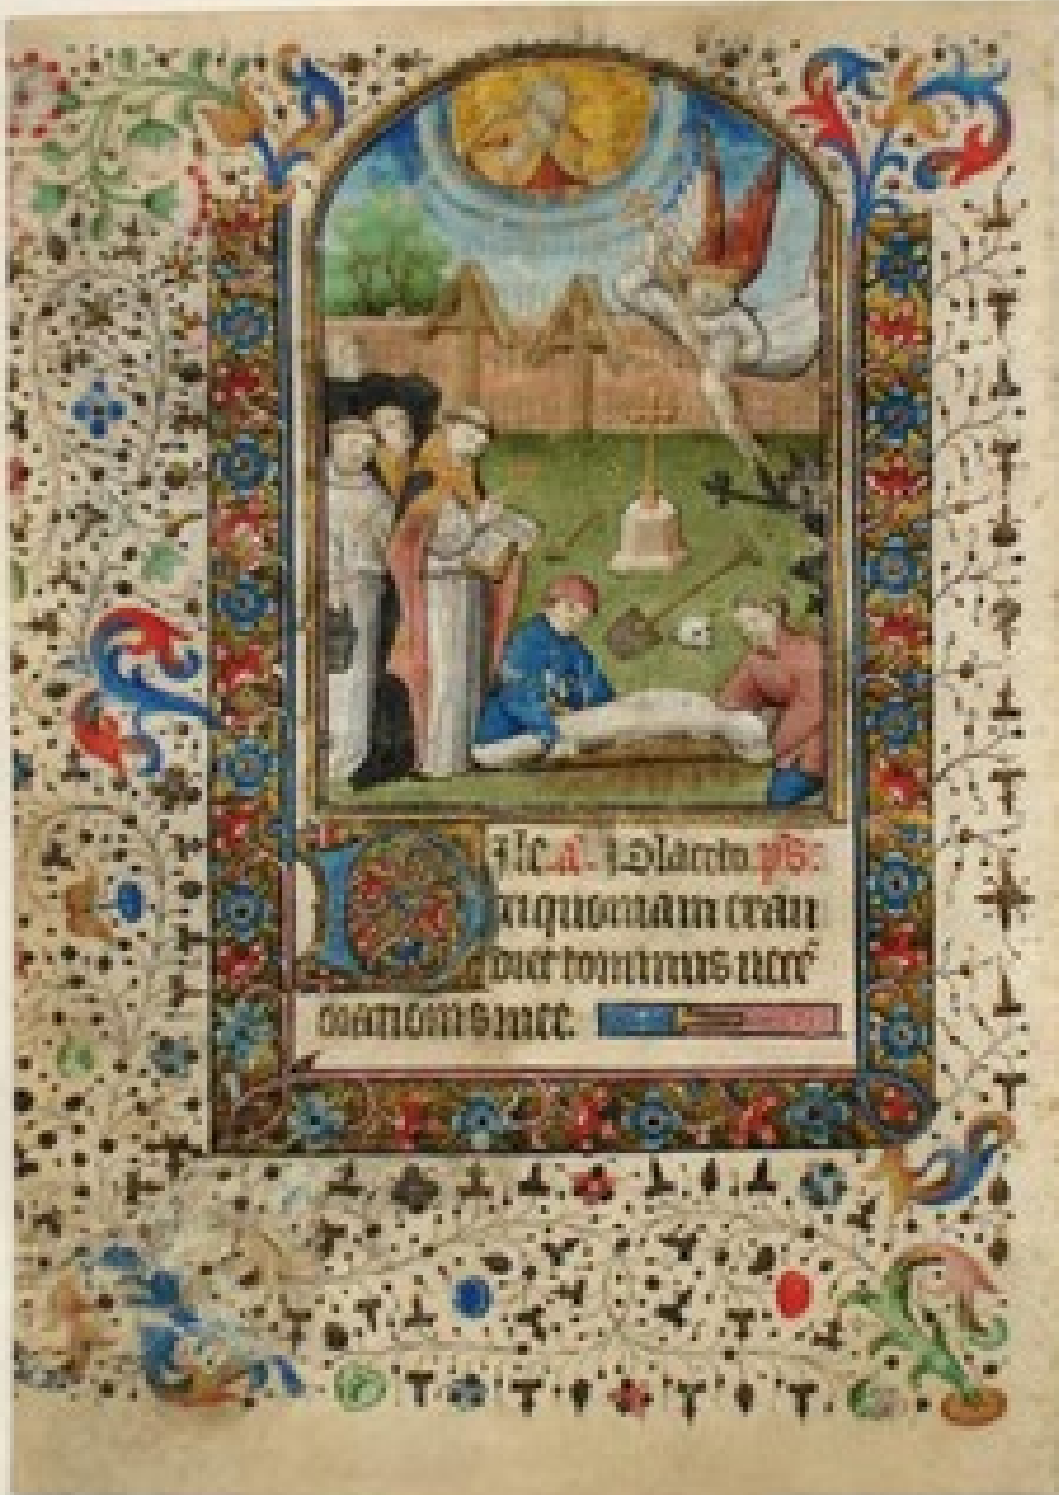 Dile. a. Placebo. ps:
xi quoniam exau
diet dominus voce
orationis mee.